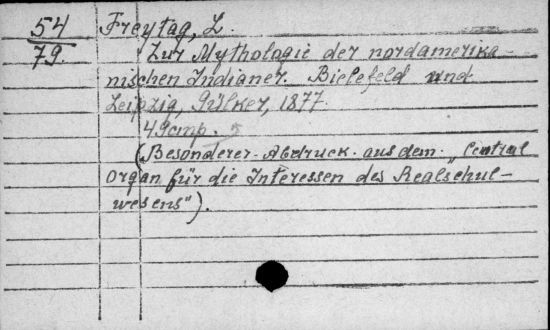 54 Freytag, L.
79. Zur Mythologie der nordamerika-
nischen Indianer. Bielefeld und
Leipzig, Gülker, 1877.
49 стр.
(Besonderer-Abdruck. aus dem. „Central
organ für die Interessen des Realschul-
wesens").